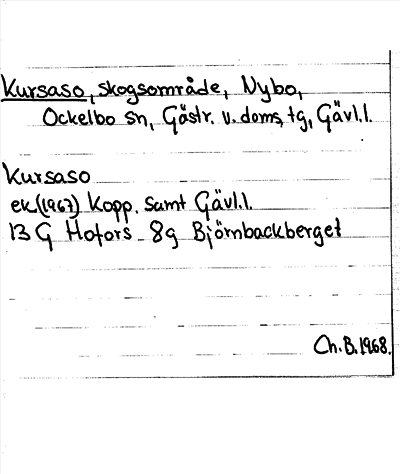 Kursaso, skogsområde, Nybo,
Ockelbo sn, Gästr. v. doms, tg, Gävl.l.
Kursaso
ek(1967) Kopp. samt Gävl.l.
13 G Hofors - 8g Björnbackberget
Ch.B.1968.